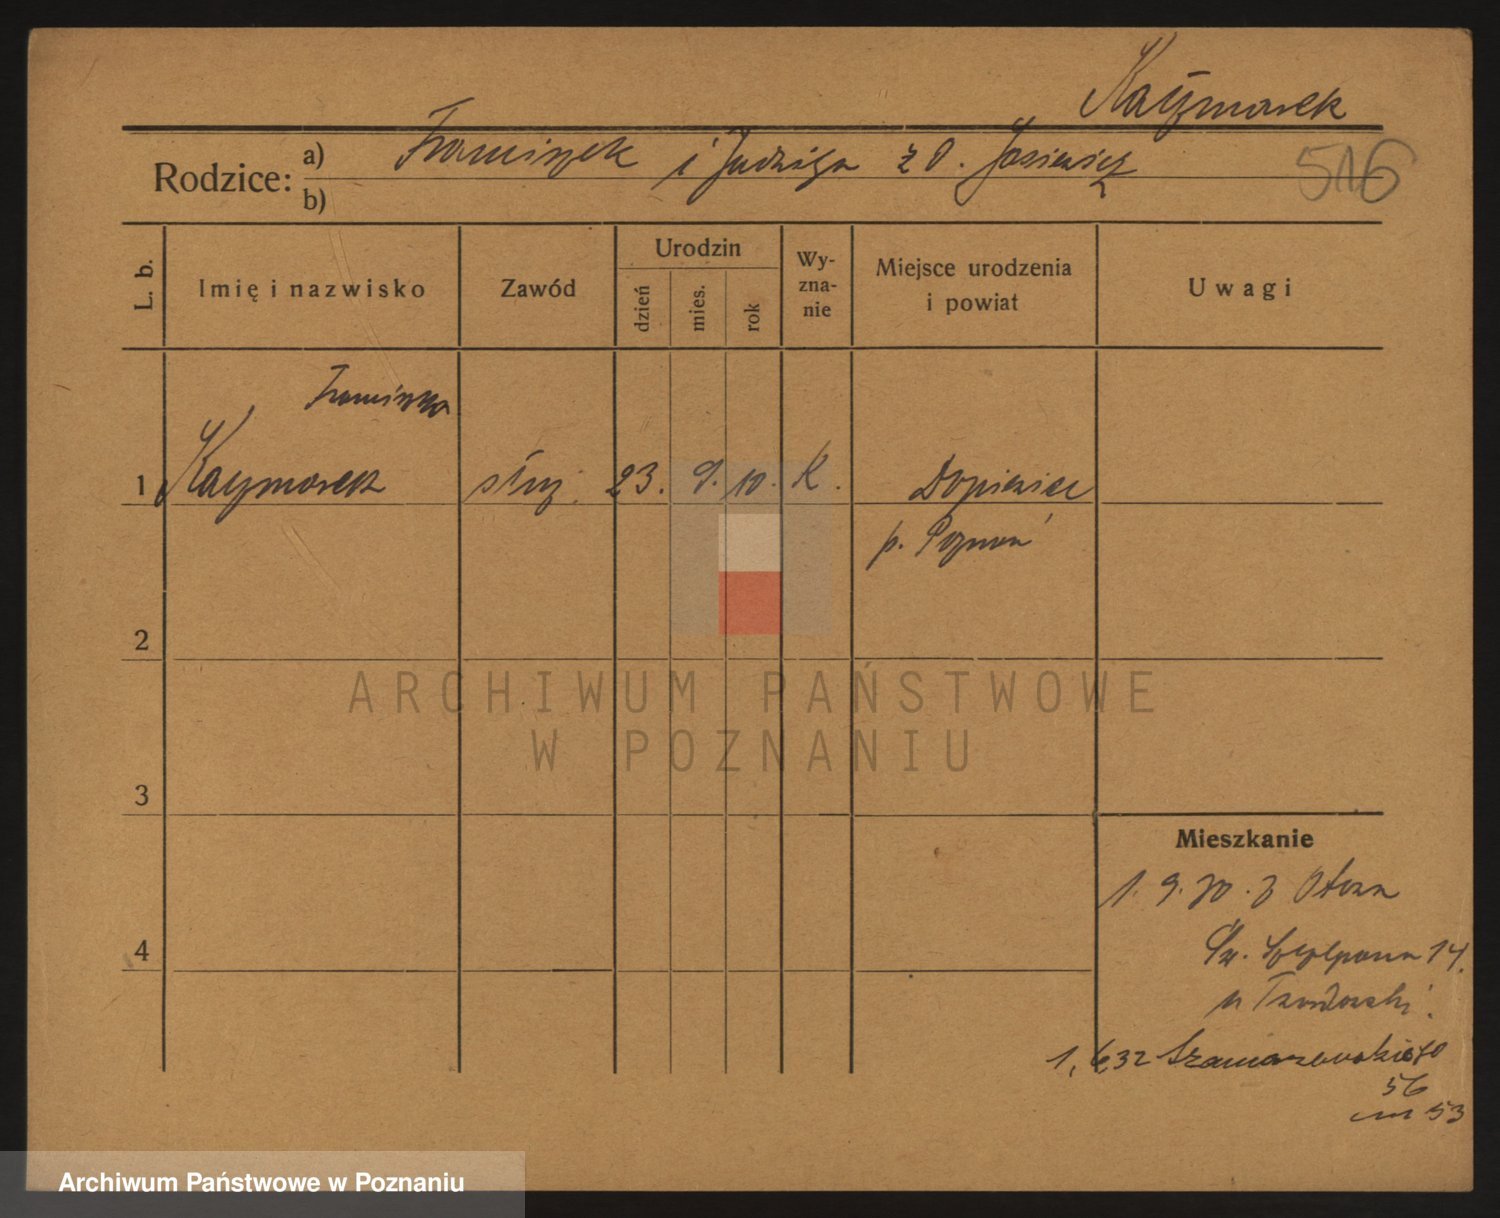 Kaczmarek
Rodzice: a) Franciszek i Jadwiga z d. Josiewicz
b)
516
L. b.
Imię i nazwisko
Zawód
Urodzin
dzień
mies.
rok
Wy-
zna-
nie
Miejsce urodzenia
i powiat
Uwagi
Franciszka
1 Kaczmarek służ. 23. 9. 10. K. Dopiewiec
p. Poznań
2
3
4
Mieszkanie
1. 9. 30. z
14.
u
1, 6, 32 Szamarzewskiego
56
m 53
ARCHIWUM PAŃSTWOWE
W POZNANIU
Archiwum Państwowe w Poznaniu